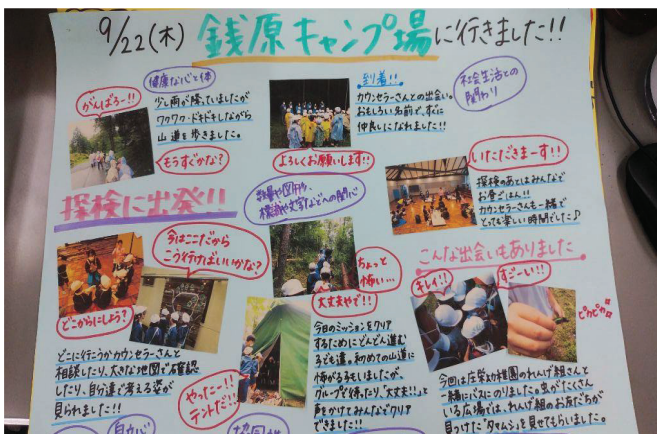 9/22(木) 銭原キャンプ場に行きました!!
がんばろー!!
健康な心と体
少し雨が降っていましたが
ワクワク・ドキドキしながら
山道を歩きました。
もうすぐかな?
到着!!
カウンセラーさんとの出会い。
おもしろい名前で、すぐに
仲良しになれました!!
よろしくお願いします!!
社会生活との
関わり
いただきまーす!!
探検のあとはみんなで
お昼ごはん!!
カウンセラーさんも一緒で
とっても楽しい時間でした♪
探検に出発!!
数量や図形、
標識や文字などへの関心
今はここだから
こう行けばいいかな?
どこからにしよう?
どこに行こうかカウンセラーさんと
相談したり、大きな地図で確認
したり、自分達で考える姿が
見られました!!
やったー!!
テントだ!!
ちょっと
怖い…
大丈夫やで!!
今日のミッションをクリア
するためにどんどん進む
子ども達。初めての山道に
怖がる子もいましたが、
グループで待ったり、「大丈夫!!」と
声をかけてみんなでクリア
できました!!
こんな出会いもありました
キレイ!!
すごーい!!
ピカピカ
今回は庄栄幼稚園のれんげ組さんと
一緒にバスにのりました。虫がたくさん
いる広場では、れんげ組のお友だちが
見つけた"タマムシ"を見せてもらいました。